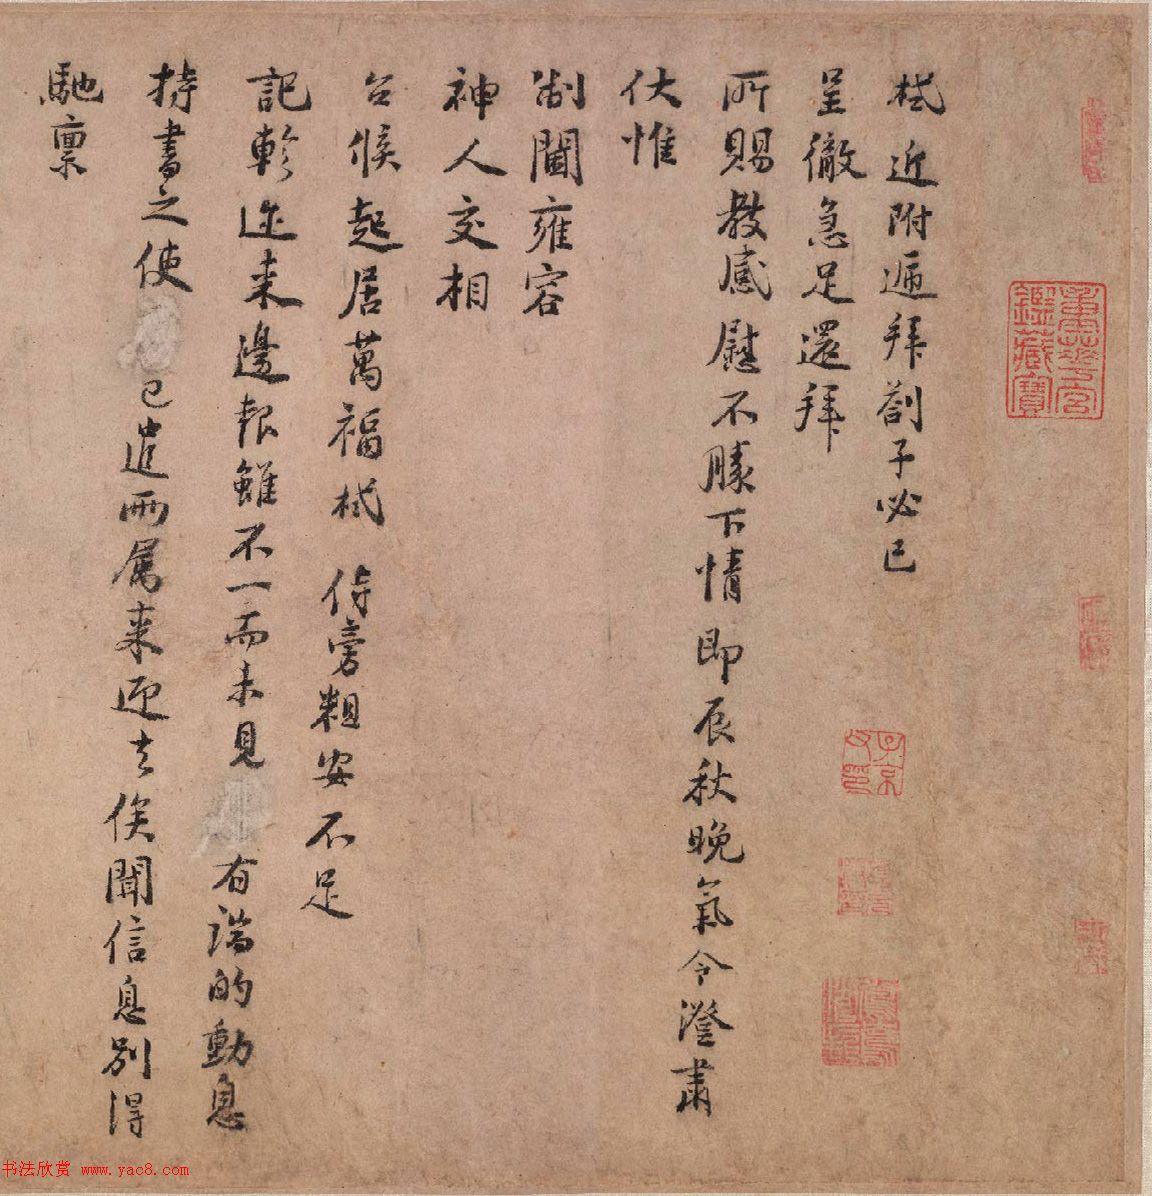 栻近附遞拜劄子必已
呈徹急足還拜
所賜教感慰不勝下情即辰秋晚氣令澄肅
伏惟
制閫雍容
神人交相
台候起居萬福栻侍旁粗安不足
記軫邇來邊報雖不一而未見有端的動息
持書之使已遣兩屬來迎之俟聞信息別得
馳稟
書法欣赏 www.yac8.com